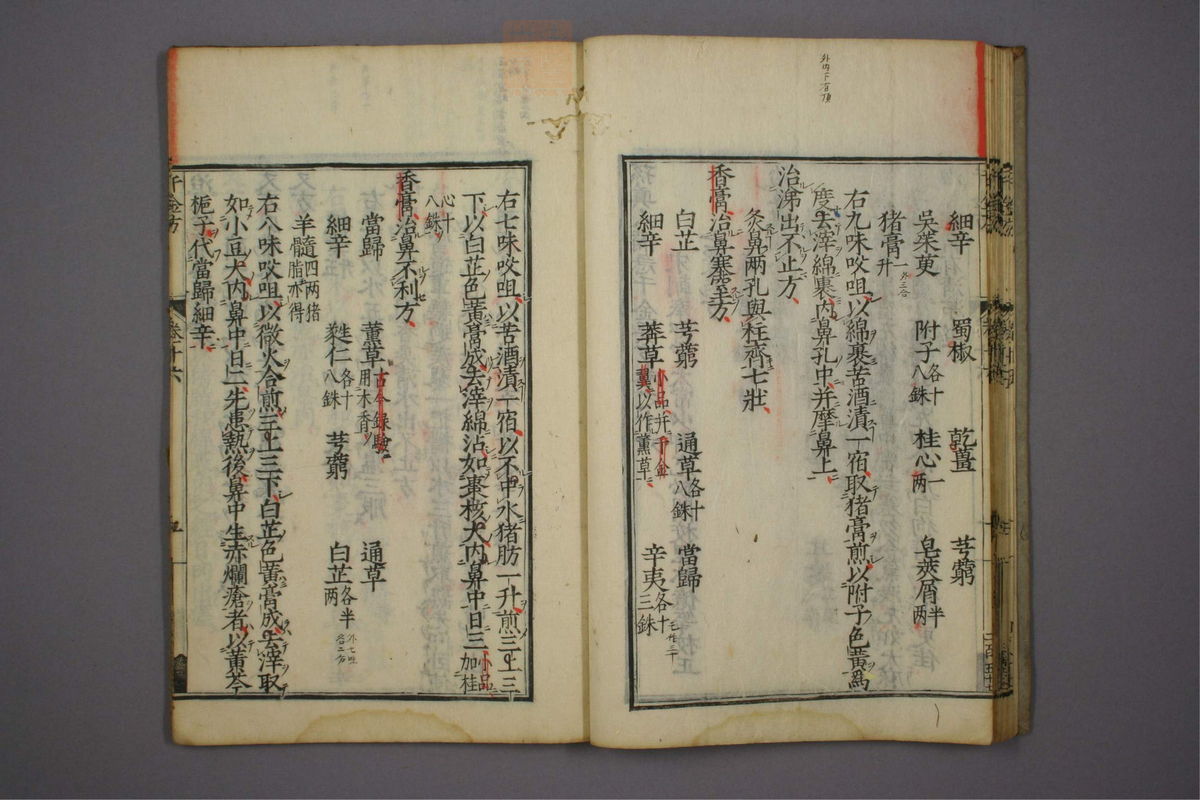 外內下有頂
細辛 蜀椒 乾薑 芎藭
吳茱萸 附子各十八銖 桂心一兩 皂莢屑半兩
猪膏一升
右九味㕮咀以綿裹苦酒漬一宿取猪膏煎以附子色黃爲
度去滓綿裹內鼻孔中并摩鼻上
治涕出不止方
灸鼻兩孔與柱齊七壯
香膏治鼻塞窒方
白芷 芎藭 通草各十八銖 當歸
細辛 莽草小品并千金翼以作薰草 辛夷各三十銖
右七味㕮咀以苦酒漬一宿以不中水猪肪一升煎三上三
下以白芷色黃膏成去滓綿沾如棗核大內鼻中日三小品加桂
心十八銖
香膏治鼻不利方
當歸 薰草古今錄驗用木香 通草
細辛 蕤仁各十八銖 芎藭 白芷各半兩
羊髓四兩猪脂亦得
右八味㕮咀以微火合煎三上三下白芷色黃膏成去滓取
如小豆大內鼻中日二先患熱後鼻中生赤爛瘡者以黃芩
梔子代當歸細辛
千金方 卷十六 五